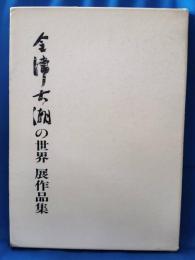 金津大潮の世界 展作品集